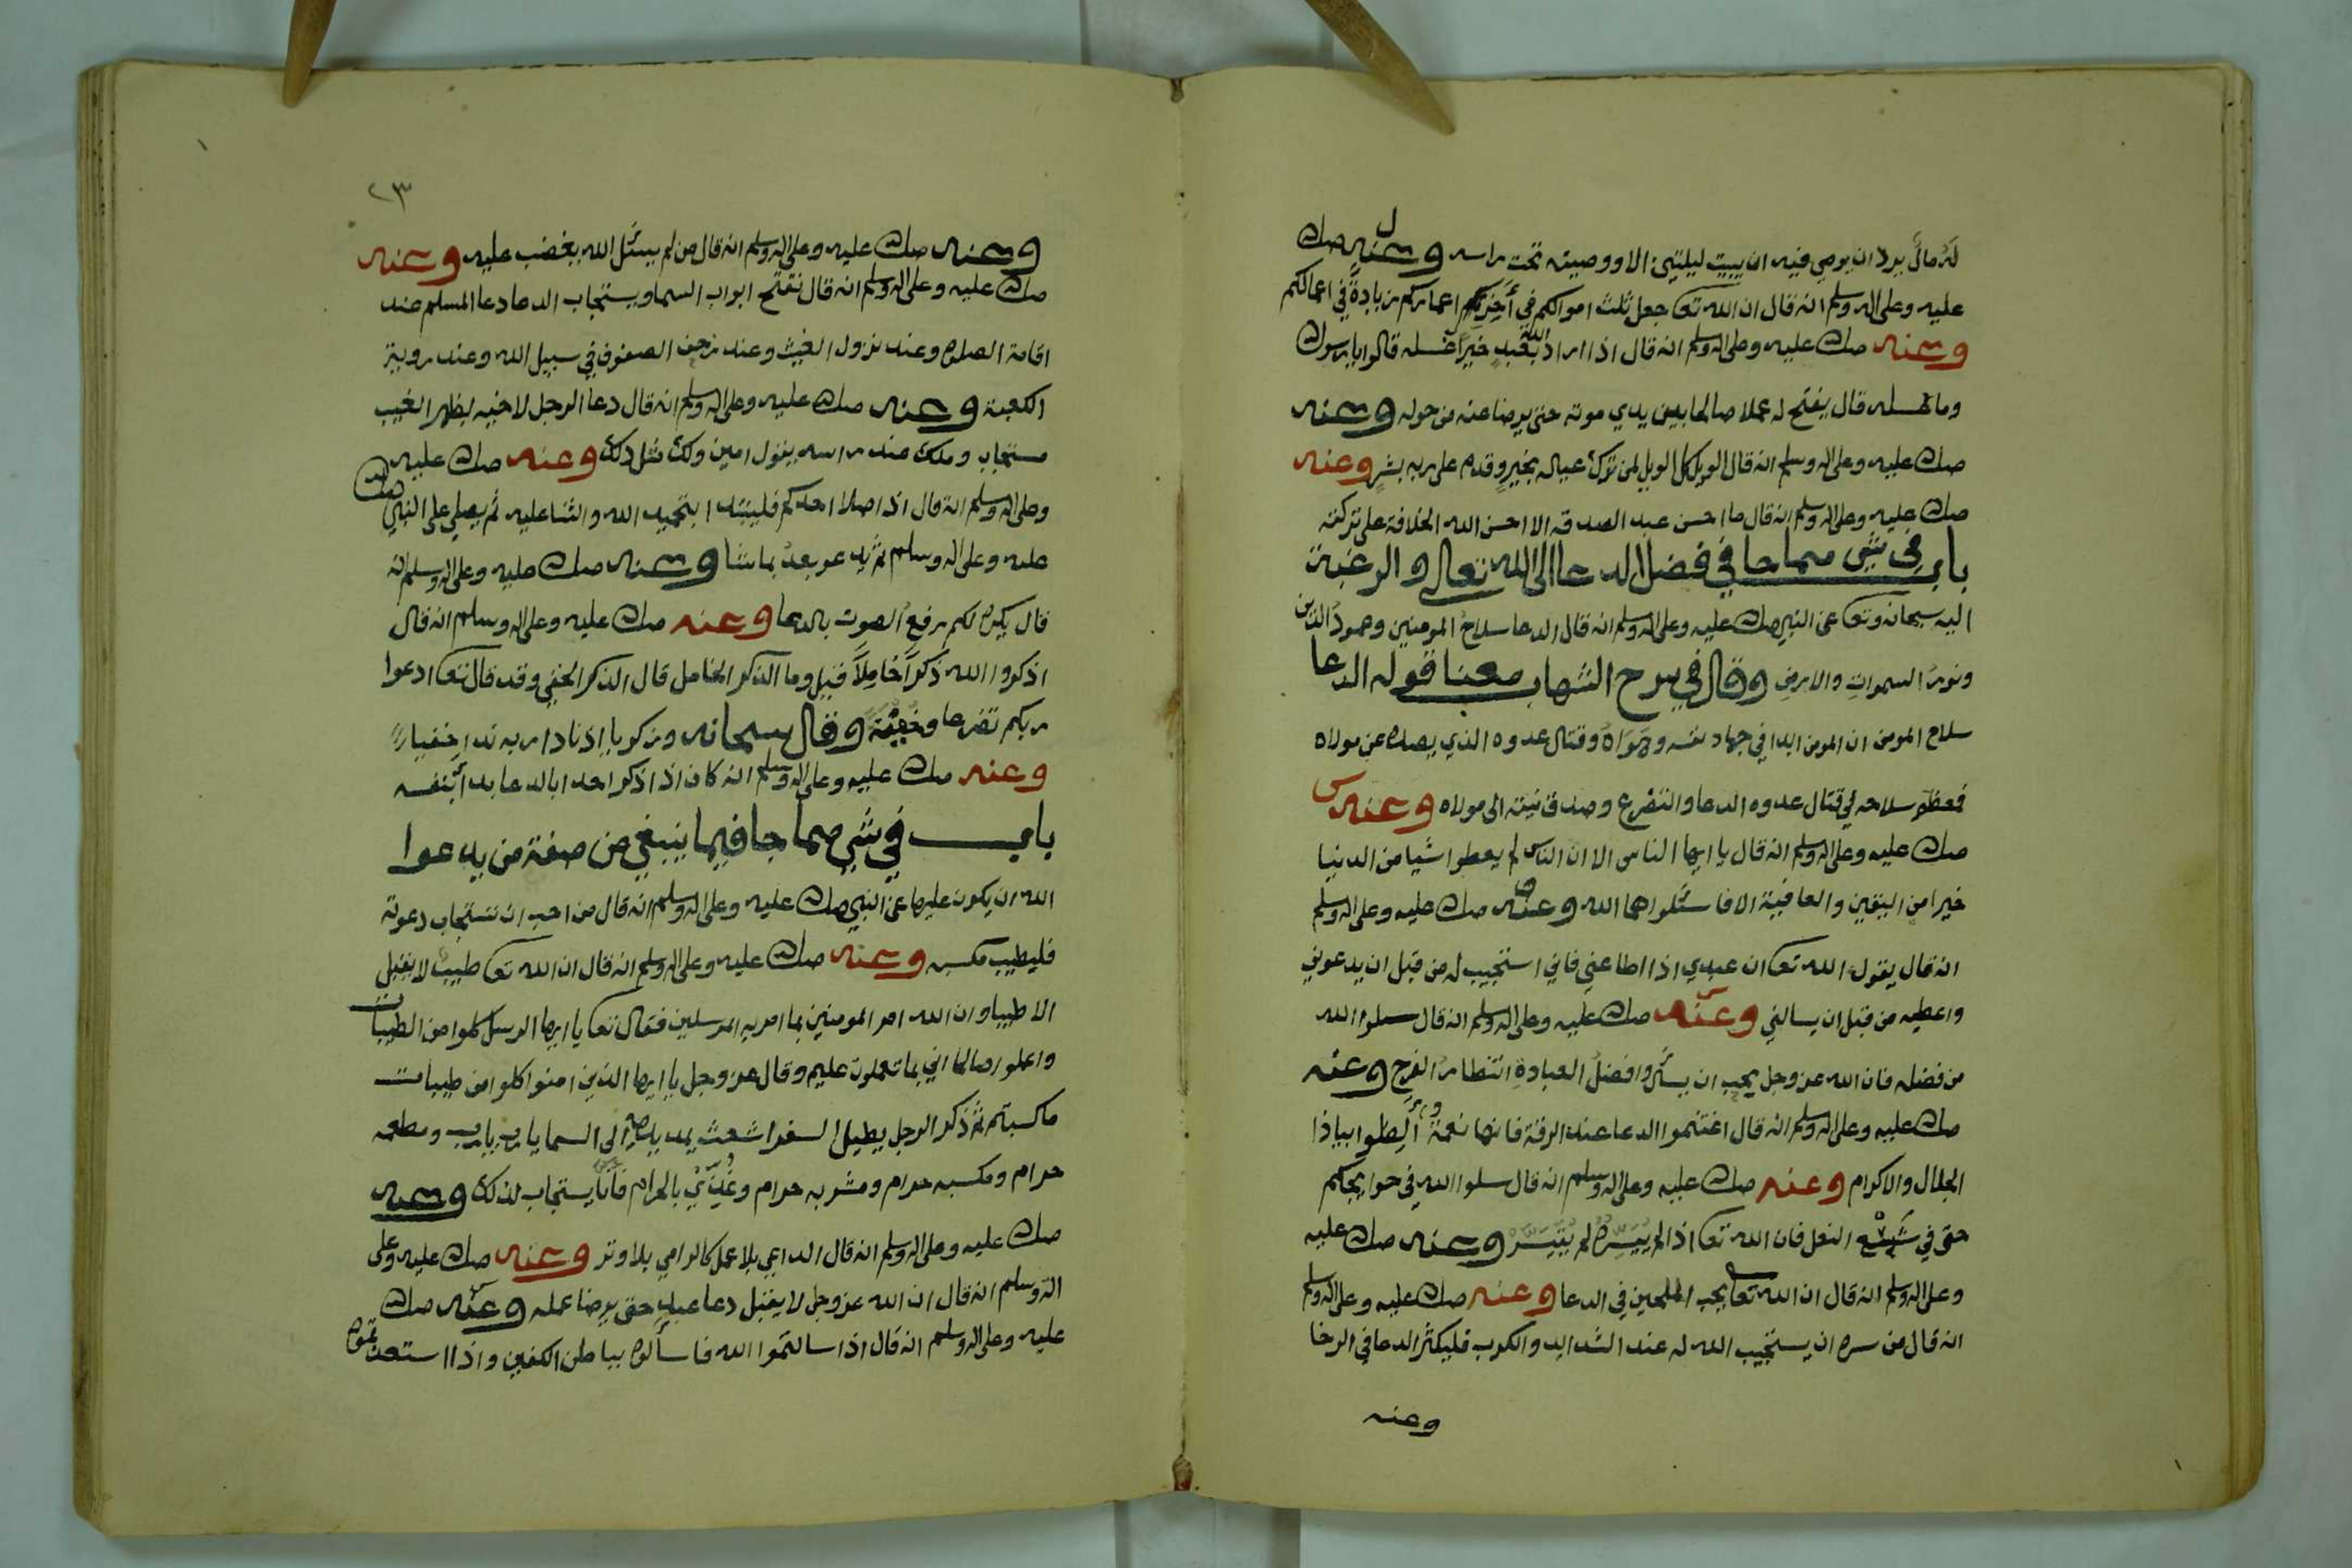 له مال يريد ان يوصي فيه ان يبيت ليلتين الا ووصيته تحت راسه وعنه صلى الله
عليه وعلى اله وسلم انه قال ان الله تعا جعل ثلث اموالكم في آخر اعماركم زيادةً في اعمالكم
وعنه صلى الله عليه وعلى اله وسلم انه قال اذا اراد الله بعبد خيراً عسله قالوا يا رسول
وما عسله قال يفتح له عملا صالحا بين يدي موته حتى يرضا عنه من حوله وعنه
صلى الله عليه وعلى اله وسلم انه قال الويل كل الويل لمن ترك عياله بخيرٍ وقدم على ربه بشرٍ وعنه
صلى الله عليه وعلى اله وسلم انه قال ما احسن عبد الصدقه الا احسن الله الخلافة على تركته
باب في شي مما جا في فضل الدعا الى الله تعالى والرغبة
اليه سبحانه وتعا عن النبي صلى الله عليه وعلى اله وسلم انه قال الدعا سلاحُ المومنين وعمودُ الدين
ونورُ السموات والارض وقال في سرح الشهاب معنا قوله الدعا
سلاح المومن ان المومن ابدا في جهاد نفسه وهَوَاهُ وقتال عدوه الذي يصده عن مولاه
فمعظم سلاحه في قتال عدوه الدعا والتضرع وصدق نيته الى مولاه وعنه
صلى الله عليه وعلى اله وسلم انه قال يا ايها الناس الا ان الناس لم يعطوا شيا من الدنيا
خيرا من اليقين والعافية الا فاسئلوا هما الله وعنه صلى الله عليه وعلى اله وسلم
انه قال يقول الله تعا ان عبدي اذا اطاعني فاني استجيب له من قبل ان يدعوني
واعطيه من قبل ان يسالني وعنه صلى الله عليه وعلى اله وسلم انه قال سلوا الله
من فضله فان الله عز وجل يحب ان يسئل وافضلُ العبادةِ انتظارُ الفرج وعنه
صلى الله عليه وعلى اله وسلم انه قال اغتنموا الدعا عند الرقة فانها نعمة وأَلِظّوا بياذا
الجلال والاكرام وعنه صلى الله عليه وعلى اله وسلم انه قال سلوا الله في حوايجكم
حتى في شسع النعل فان الله تعا اذا لم ييسِّره لم يتيسَّر وعنه صلى الله عليه
وعلى اله وسلم انه قال ان الله تعا يحب الملحين في الدعا وعنه صلى الله عليه وعلى اله وسلم
انه قال من سره ان يستجيب الله له عند الشدايد والكروب فليكثر الدعا في الرخا
وعنه
٢٣
وعنه صلى الله عليه وعلى اله وسلم انه قال من لم يسئل الله يغضب عليه وعنه
صلى الله عليه وعلى اله وسلم انه قال تفتح ابواب السما ويستجاب الدعا دعا المسلم عند
اقامة الصلوه وعند نزول الغيث وعند زحف الصفوف في سبيل الله وعند روية
الكعبة وعنه صلى الله عليه وعلى اله وسلم انه قال دعا الرجل لاخيه بظهر الغيب
مستجاب وملك عند راسه يقول امين ولك مثل ذلك وعنه صلى الله عليه
وعلى اله وسلم انه قال اذا صلا احدكم فليبتدا بتحميد الله والثنا عليه ثم يصلي على النبي صلى الله
عليه وعلى اله وسلم ثم يدعو بعدُ بما شا وعنه صلى الله عليه وعلى اله وسلم انه
قال يكره لكم رفع الصوت بالدعا وعنه صلى الله عليه وعلى اله وسلم انه قال
اذكروا الله ذكراً خامِلاً قيل وما الذكر الخامل قال الذكر الخفي وقد قال تعا ادعوا
ربكم تضرعا وخفية وقال سبحانه وزكريا اذ نادا ربه ندا خفيا
وعنه صلى الله عليه وعلى اله وسلم انه كان اذا ذكر احدا بالدعا بدا بنفسه
باب في شي مما جا فيما ينبغي من صفة من يدعوا
الله ان يكون عليها عن النبي صلى الله عليه وعلى اله وسلم انه قال من احب ان تستجاب دعوته
فليطيب مكسبه وعنه صلى الله عليه وعلى اله وسلم انه قال ان الله تعا طيبٌ لا يقبل
الا طيبا وان الله امر المومنين بما امر به المرسلين فقال تعا يا ايها الرسل كلوا من الطيبات
واعملوا صالحا اني بما تعملون عليم وقال عز وجل يا ايها الذين امنوا كلوا من طيبات
ما كسبتم ثم ذكر الرجل يطيل السفر اشعث يمد يديه الى السما يا رب يا رب ومطعمه
حرام ومكسبه حرام ومشربه حرام وغُذِّيَ بالحرام فانا يستجاب لذلك وعنه
صلى الله عليه وعلى اله وسلم انه قال الداعي بلا عمل كالرامي بلا وتر وعنه صلى الله عليه وعلى
اله وسلم انه قال ان الله عز وجل لا يقبل دعا عبدٍ حتى يرضا عمله وعنه صلى الله
عليه وعلى اله وسلم انه قال اذا سالتموا الله فاسألوه بباطن الكفين واذا استعذتموه